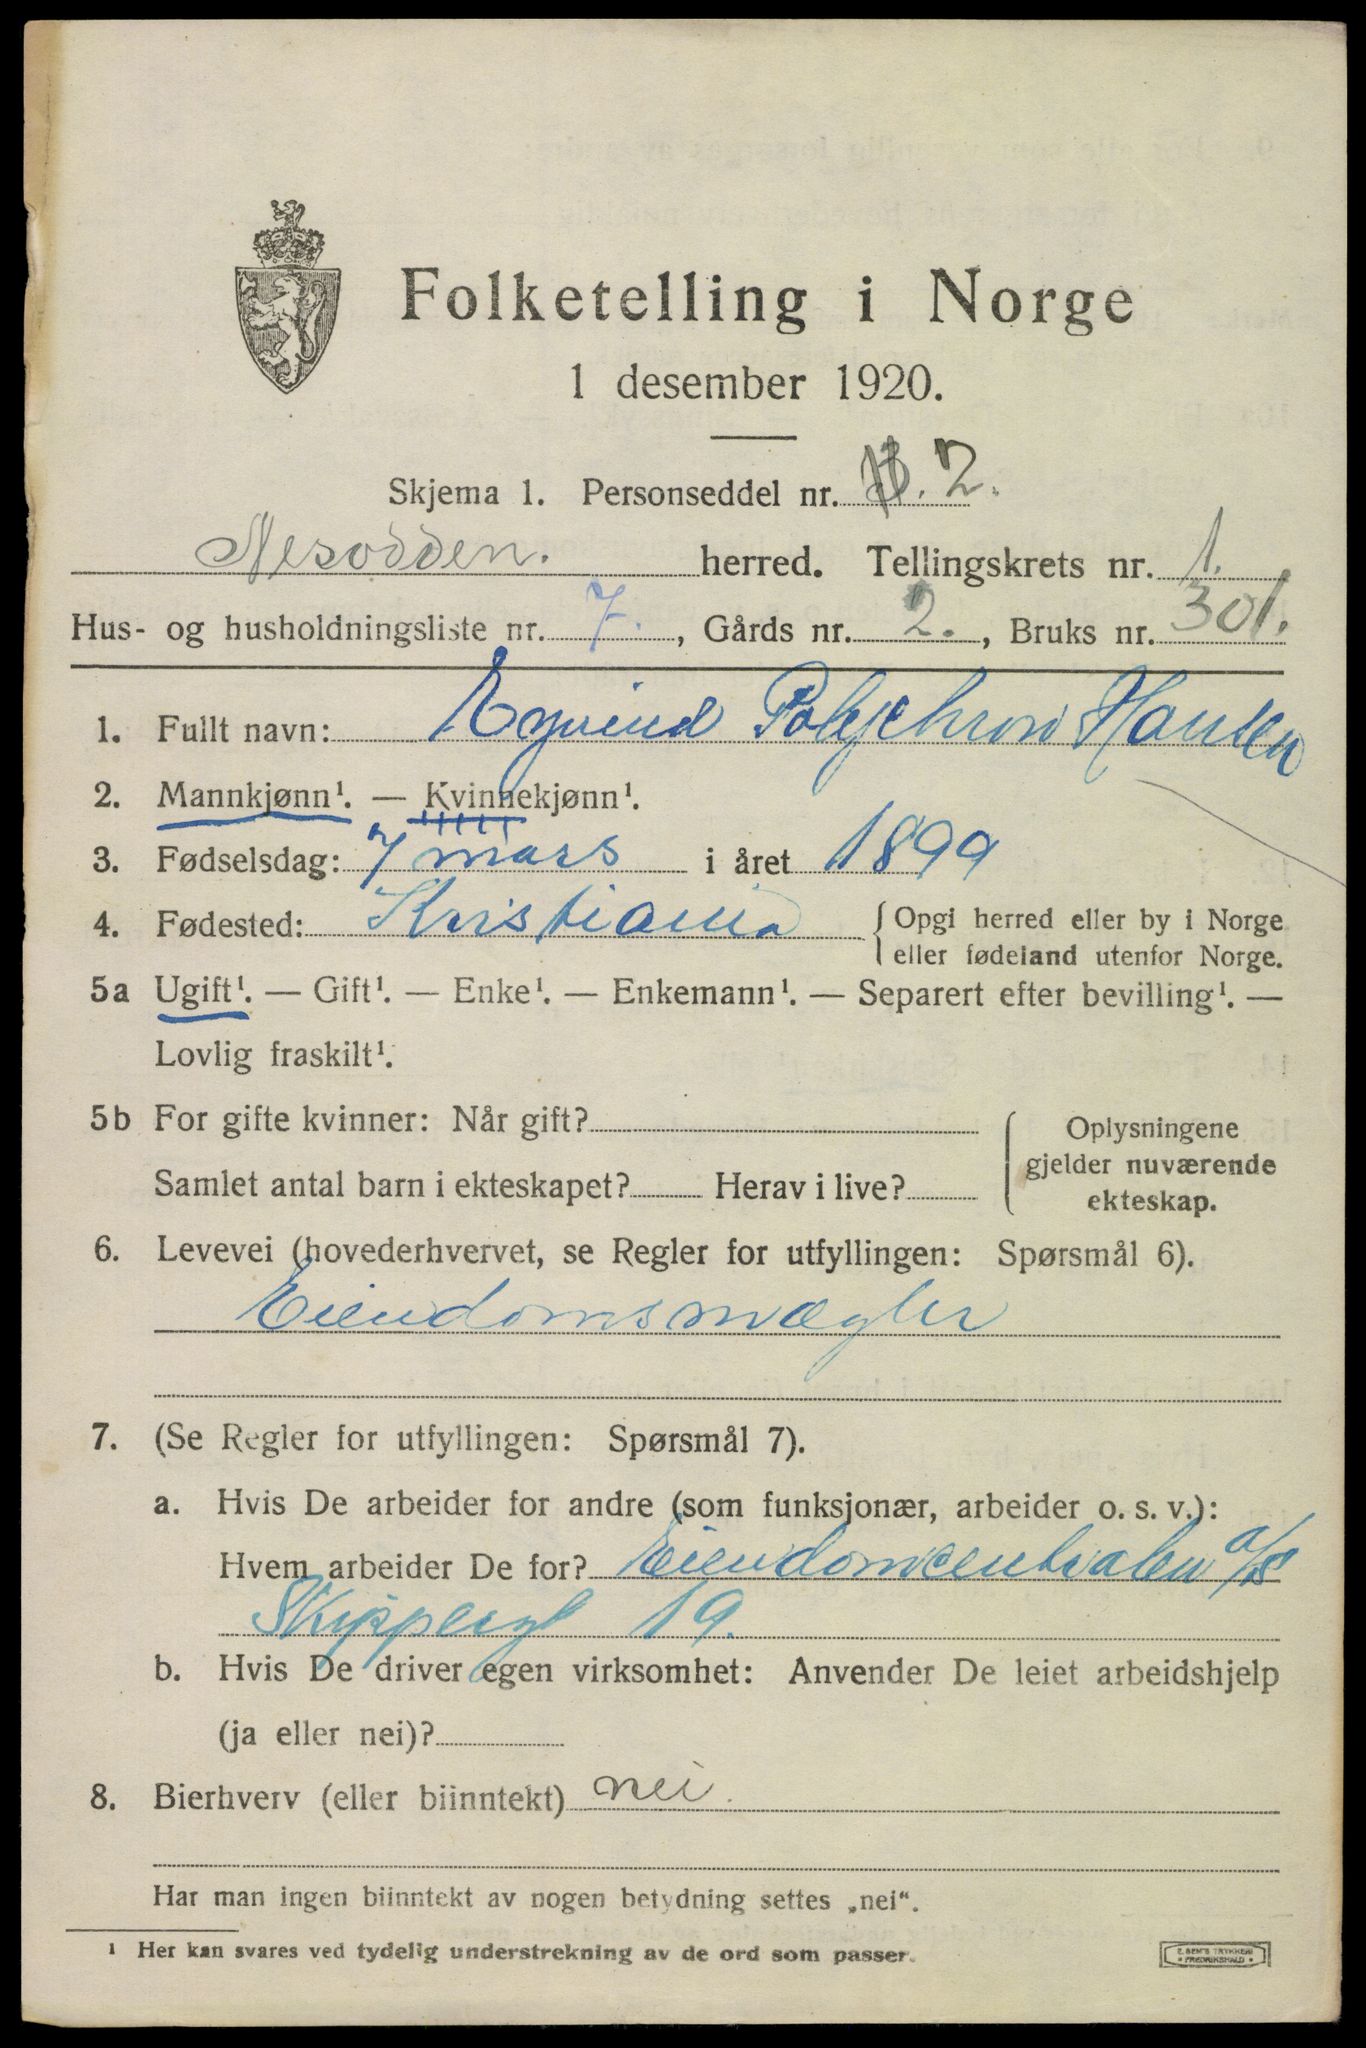 Folketelling i Norge
1 desember 1920.
Skjema 1. Personseddel nr. 2.
Nesodden. herred. Tellingskrets nr. 1.
Hus- og husholdningsliste nr. 7., Gårds nr. 2., Bruks nr. 301.
1. Fullt navn: Eyvind Polychron Hansen
2. Mannkjønn¹. — Kvinnekjønn¹.
3. Fødselsdag: 7 mars i året 1899
4. Fødested: Kristiania { Opgi herred eller by i Norge
eller fødeland utenfor Norge.
5a Ugift¹. — Gift¹. — Enke¹. — Enkemann¹. — Separert efter bevilling¹. —
Lovlig fraskilt¹.
5b For gifte kvinner: Når gift?
Samlet antal barn i ekteskapet? Herav i live?
Oplysningene
gjelder nuværende
ekteskap.
6. Levevei (hovederhvervet, se Regler for utfyllingen: Spørsmål 6).
Eiendomsmægler
7. (Se Regler for utfyllingen: Spørsmål 7).
a. Hvis De arbeider for andre (som funksjonær, arbeider o. s. v.):
Hvem arbeider De for? Eiendomcentralen a/s
Skippergt 19.
b. Hvis De driver egen virksomhet: Anvender De leiet arbeidshjelp
(ja eller nei)?
8. Bierhverv (eller biinntekt) nei.
Har man ingen biinntekt av nogen betydning settes „nei“.
¹ Her kan svares ved tydelig understrekning av de ord som passer.
E. SEM'S TRYKKERI
• FREDRIKSHALD •